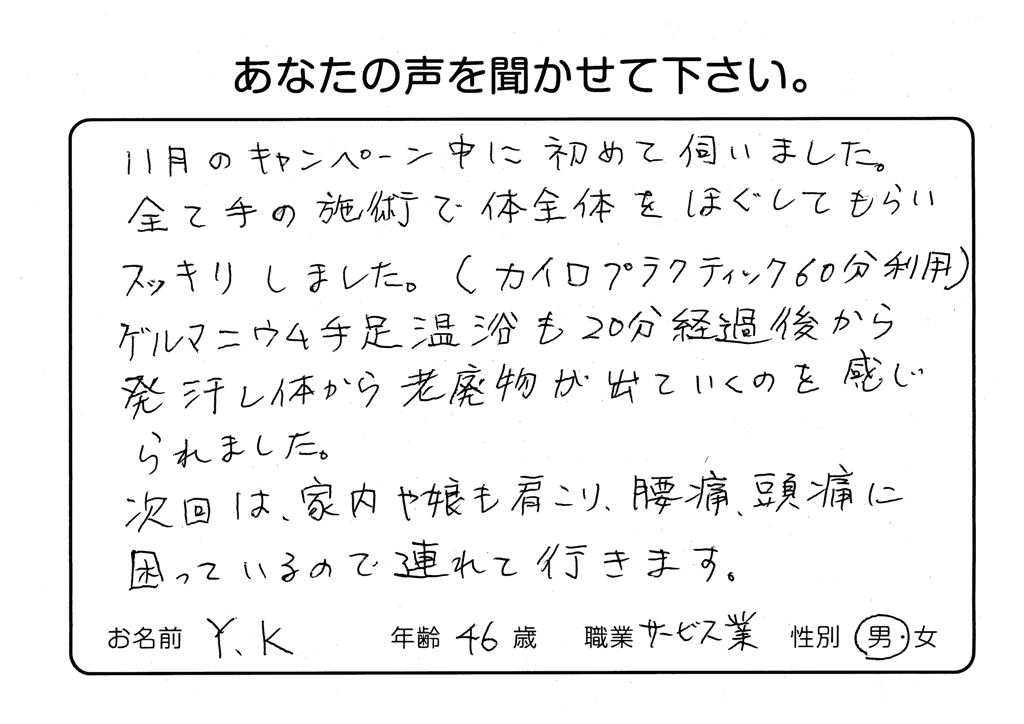 あなたの声を聞かせて下さい。
11月のキャンペーン中に初めて伺いました。
全て手の施術で体全体をほぐしてもらい
スッキリしました。(カイロプラクティック60分利用)
ゲルマニウム手足温浴も20分経過後から
発汗し体から老廃物が出ていくのを感じ
られました。
次回は、家内や娘も肩こり、腰痛、頭痛に
困っているので連れて行きます。
お名前 Y、K 年齢 46 歳 職業 サービス業 性別 男・女